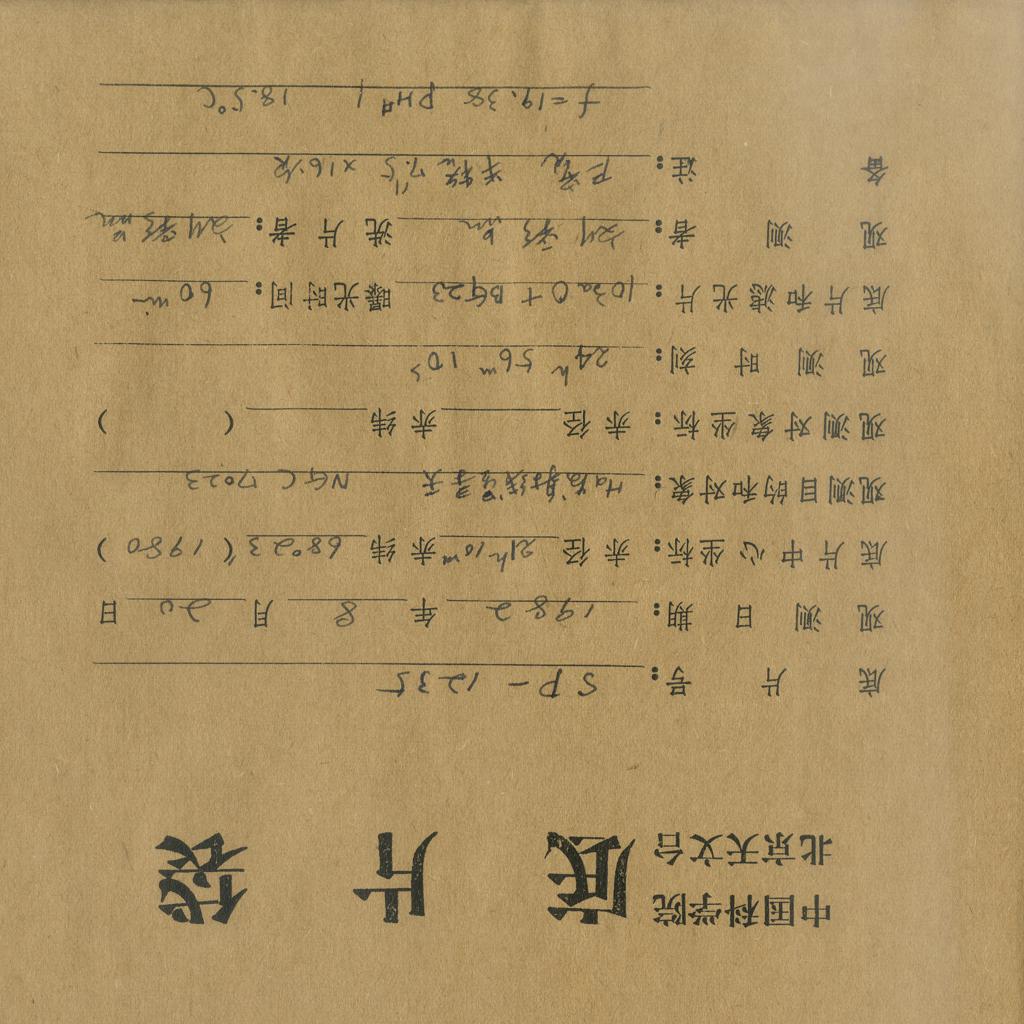 中国科学院
北京天文台
底片袋
底片号: SP-1235
观测日期: 1982年8月20日
底片中心坐标: 赤径21h10m赤纬68°23(1980)
观测目的和对象: Hα发射线星 NGC 7023
观测对象坐标: 赤径 赤纬 ( )
观测时刻: 24h 56m 10s
底片和滤光片: 103aO+BG23 曝光时间: 60m
观测者: 刘彩品 洗片者: 刘彩品
备注: 7."5 ×16次
f=19.38 PH#1 18.5°C